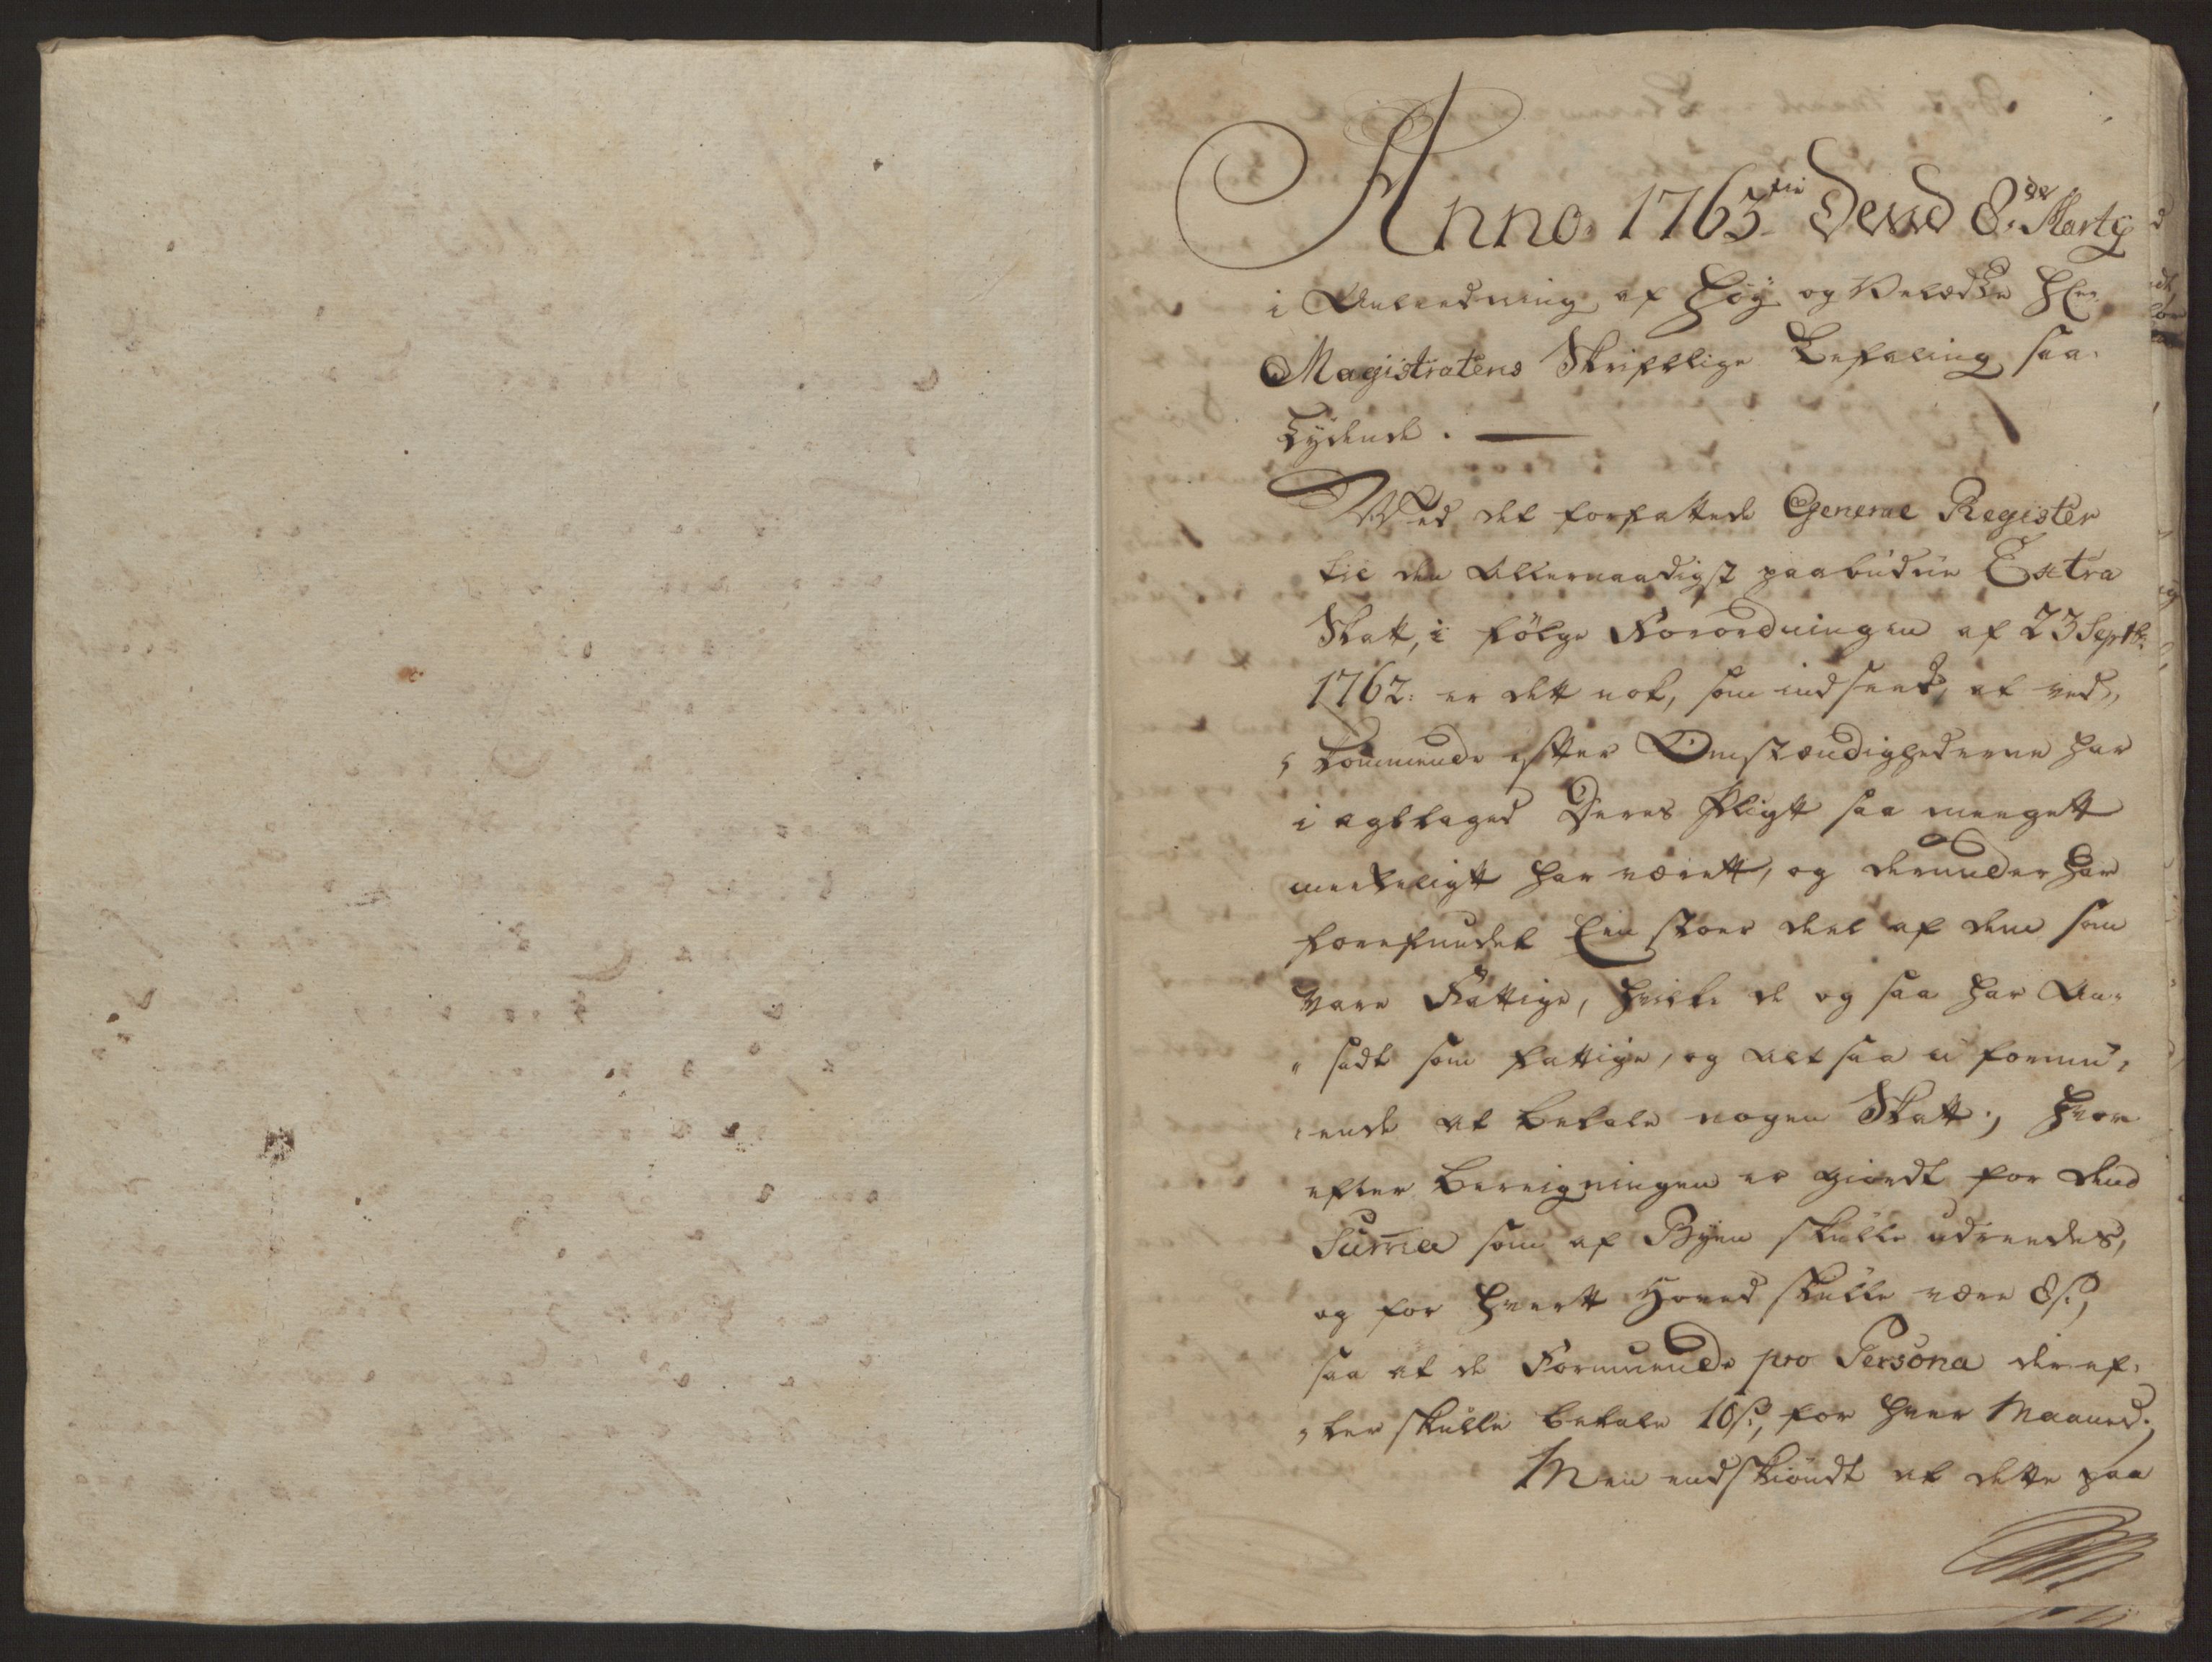 Anno 1763tie Dend 8de Marty
i Anleedning af Høy og Velædle Hr
Magistratens Skriftlige Befaling saa
Lydende.
Wed det forfattede General Register
til den Allernaadigst paabudne Extra
Skatt, i følge Forordningen af 23 Septbr
1762: er dett nok, som indseet, at ved„
„kommende efter Omstændighederne har
i agttaged Deres Pligt saa meegett
mueheligt har værett, og derunder har
forefundet Een stoer deel af dem som
vare Fattige, hvilke de og saa har An„
„sadt som fattige, og altsaa u formu„
„ende at betale nogen Skatt; hvor
efter Bereigningen er giordt for dend
Suma som af Byen skulle udreedes,
og for hvertt Hoved skulle være 8s,
saa at de Formuende pro Persona der ef„
„ter skulle betale 16s, for hver Maaned;
Men endskiøndt at dette paa